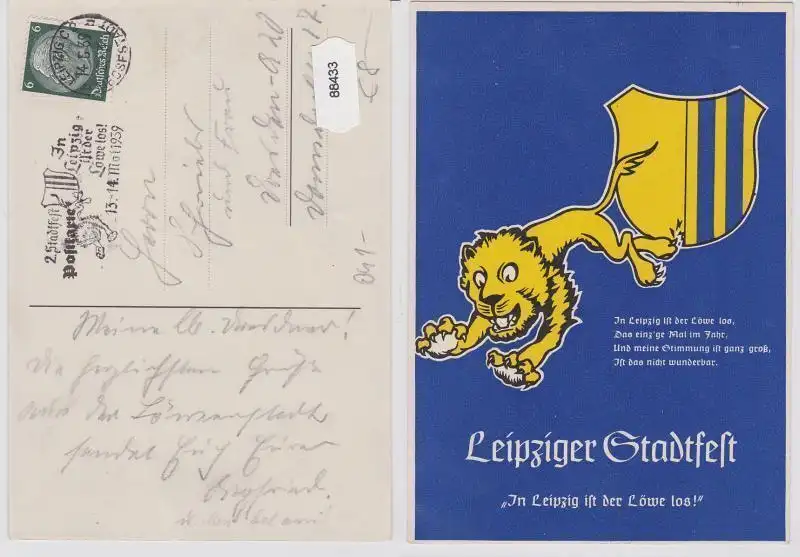 6
6
Deutsches Reich
LEIPZIG C 2
14.5.39
MESSESTADT
In
Leipzig
ist der
Löwe los!
13.-14. Mai 1939
2. Stadtfest
Postkarte
88433
Herrn
und Frau
Dresden
17.
Meine lb. Dresdner!
Die herzlichsten Grüße
aus der Löwenstadt
sendet Euch Euer
Siegfried.
In Leipzig ist der Löwe los,
Das einz'ge Mal im Jahr,
Und meine Stimmung ist ganz groß,
Ist das nicht wunderbar.
Leipziger Stadtfest
„In Leipzig ist der Löwe los!"